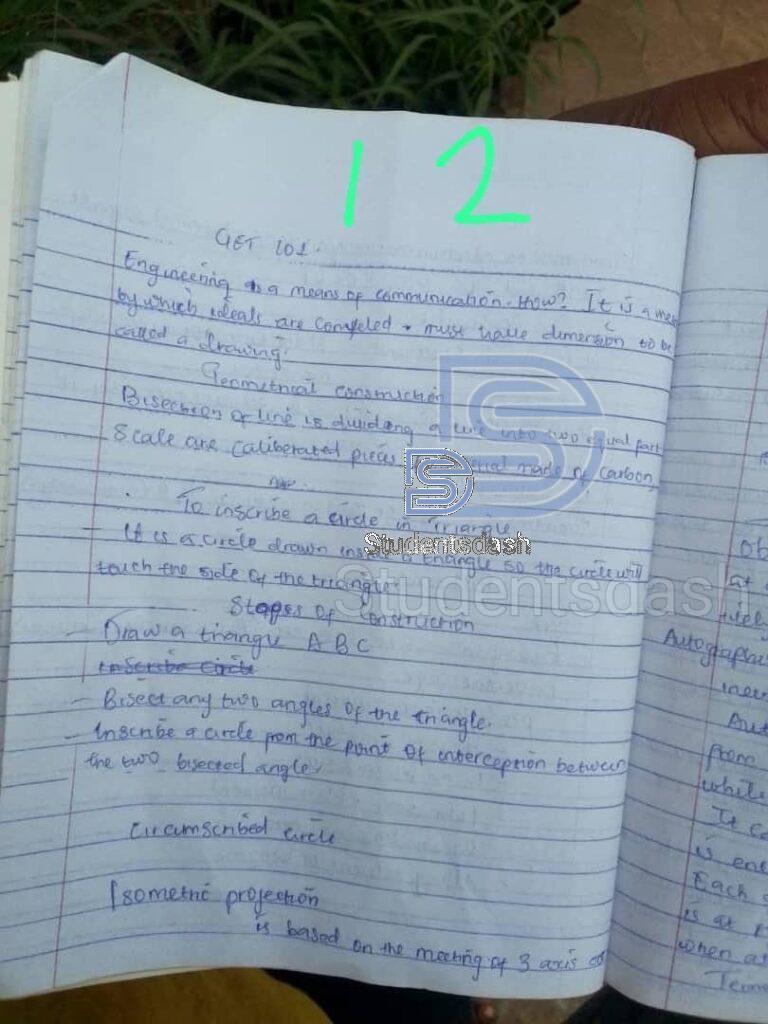 12
GET 101.
Engineering is a means of communication. How? It is a
by which ideals are must have dimension to be
called a drawing.
Geometrical construction
Bisection of line is dividing a line into two equal part
Scale are caliberated pieces made of carbon,
To inscribe a circle in Triangle
- It is a circle drawn a triangle so the circle will
touch the side of the triangle.
Stages of Construction
- Draw a triangle A B C
Inscribe circle
- Bisect any two angles of the triangle.
- Inscribe a circle from the point of interception between
the two bisected angle.
Circumscribed circle
Isometric projection
is based on the meeting of 3 axis
Studentsdash
Studentsdash
Ob
at
Autograph
Aut
from
while
It
is
Each
is at
when